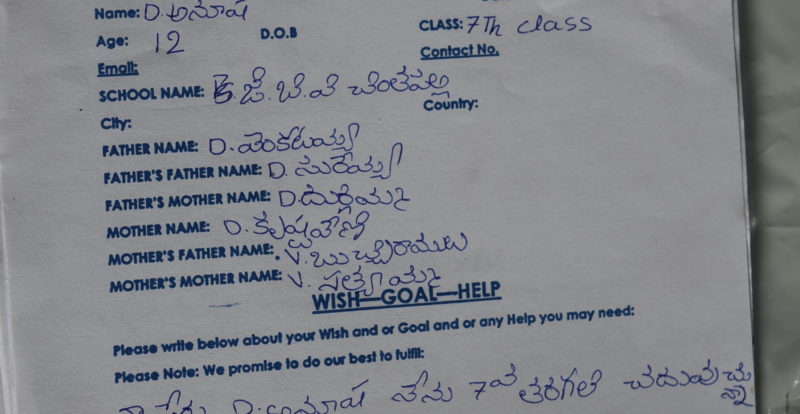 Name: D. అనూష
CLASS: 7Th class
Age: 12
D.O.B
Contact No.
Email:
SCHOOL NAME: కె. జి. బి. వి చింతపల్లి
City:
Country:
FATHER NAME: D. వెంకటయ్య
FATHER'S FATHER NAME: D. సురయ్య
FATHER'S MOTHER NAME: D. దుర్గమ్మ
MOTHER NAME: D. కృష్ణవేణి
MOTHER'S FATHER NAME: V. బుచ్చిరాములు
MOTHER'S MOTHER NAME: V. సత్యమ్మ
WISH—GOAL—HELP
Please write below about your Wish and or Goal and or any Help you may need:
Please Note: We promise to do our best to fulfil:
నా పేరు D. అనూష నేను 7వ తరగతి చదువుచున్నా